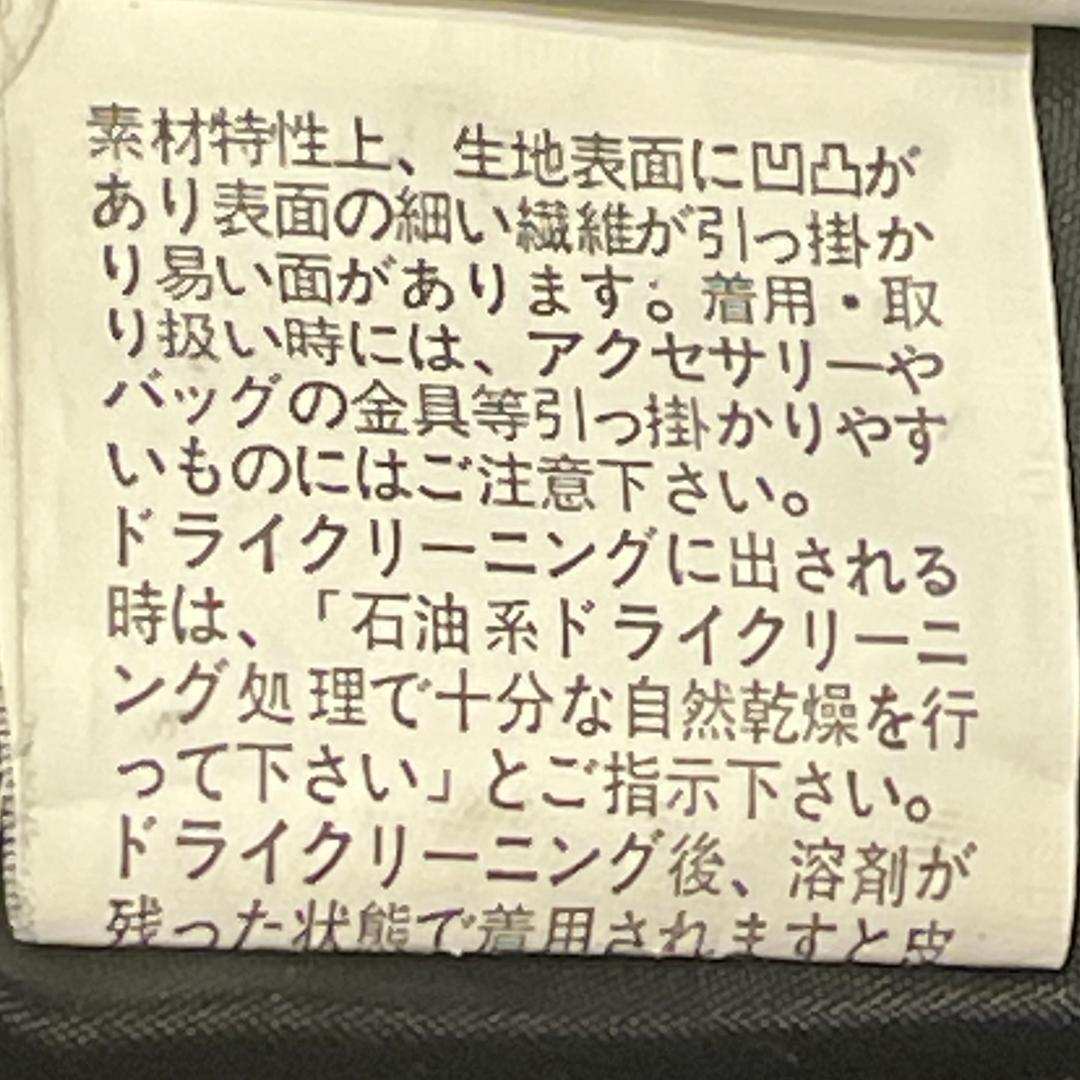 素材特性上、生地表面に凹凸が
あり表面の細い繊維が引っ掛か
り易い面があります。着用・取
り扱い時には、アクセサリーや
バッグの金具等引っ掛かりやす
いものにはご注意下さい。
ドライクリーニングに出される
時は、「石油系ドライクリーニ
ング処理で十分な自然乾燥を行
って下さい」とご指示下さい。
ドライクリーニング後、溶剤が
残った状態で着用されますと皮